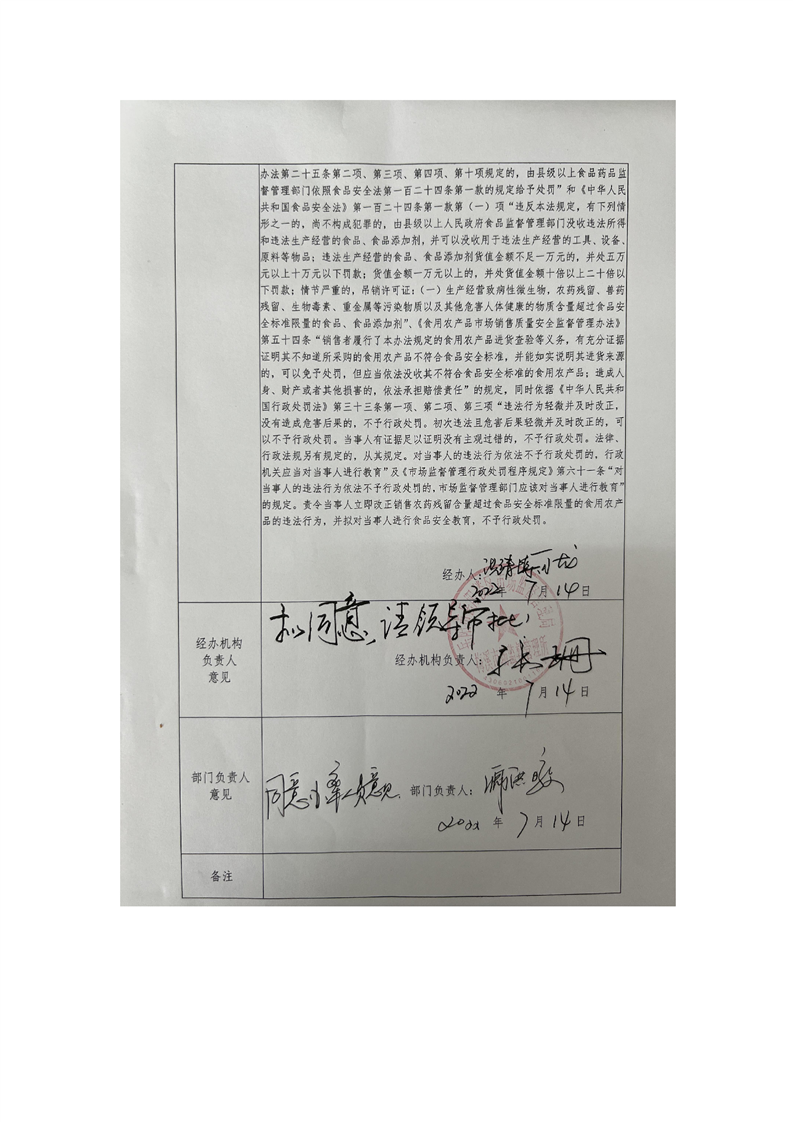 办法第二十五条第二项、第三项、第四项、第十项规定的，由县级以上食品药品监
督管理部门依照食品安全法第一百二十四条第一款的规定给予处罚”和《中华人民
共和国食品安全法》第一百二十四条第一款第（一）项“违反本法规定，有下列情
形之一的，尚不构成犯罪的，由县级以上人民政府食品监督管理部门没收违法所得
和违法生产经营的食品、食品添加剂，并可以没收用于违法生产经营的工具、设备、
原料等物品；违法生产经营的食品、食品添加剂货值金额不足一万元的，并处五万
元以上十万元以下罚款；货值金额一万元以上的，并处货值金额十倍以上二十倍以
下罚款；情节严重的，吊销许可证：（一）生产经营致病性微生物，农药残留、兽药
残留、生物毒素、重金属等污染物质以及其他危害人体健康的物质含量超过食品安
全标准限量的食品、食品添加剂”、《食用农产品市场销售质量安全监督管理办法》
第五十四条“销售者履行了本办法规定的食用农产品进货查验等义务，有充分证据
证明其不知道所采购的食用农产品不符合食品安全标准，并能如实说明其进货来源
的，可以免予处罚，但应当依法没收其不符合食品安全标准的食用农产品；造成人
身、财产或者其他损害的，依法承担赔偿责任”的规定，同时依据《中华人民共和
国行政处罚法》第三十三条第一项、第二项、第三项“违法行为轻微并及时改正，
没有造成危害后果的，不予行政处罚。初次违法且危害后果轻微并及时改正的，可
以不予行政处罚。当事人有证据足以证明没有主观过错的，不予行政处罚。法律、
行政法规另有规定的，从其规定。对当事人的违法行为依法不予行政处罚的，行政
机关应当对当事人进行教育”及《市场监督管理行政处罚程序规定》第六十一条“对
当事人的违法行为依法不予行政处罚的，市场监督管理部门应该对当事人进行教育”
的规定。责令当事人立即改正销售农药残留含量超过食品安全标准限量的食用农产
品的违法行为，并拟对当事人进行食品安全教育，不予行政处罚。
经办人：
2022年 7月14日
经办机构
负责人
意见
拟同意，请领导审批，
经办机构负责人：
2022 年 7月14日
部门负责人
意见
同意办案人员意见、部门负责人：
2022 年 7月14日
备注